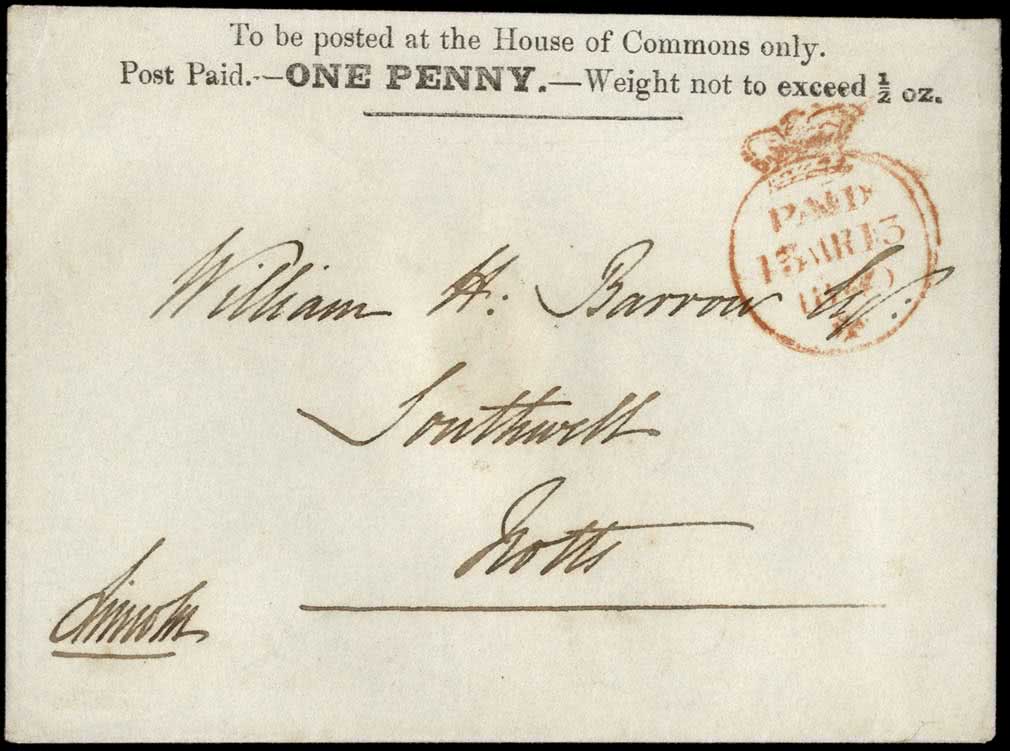 To be posted at the House of Commons only.
Post Paid.—ONE PENNY.—Weight not to exceed ½ oz.
PAID
13 MR 13
1840
William H. Barrow Esq.
Southwell
Notts
Lincoln